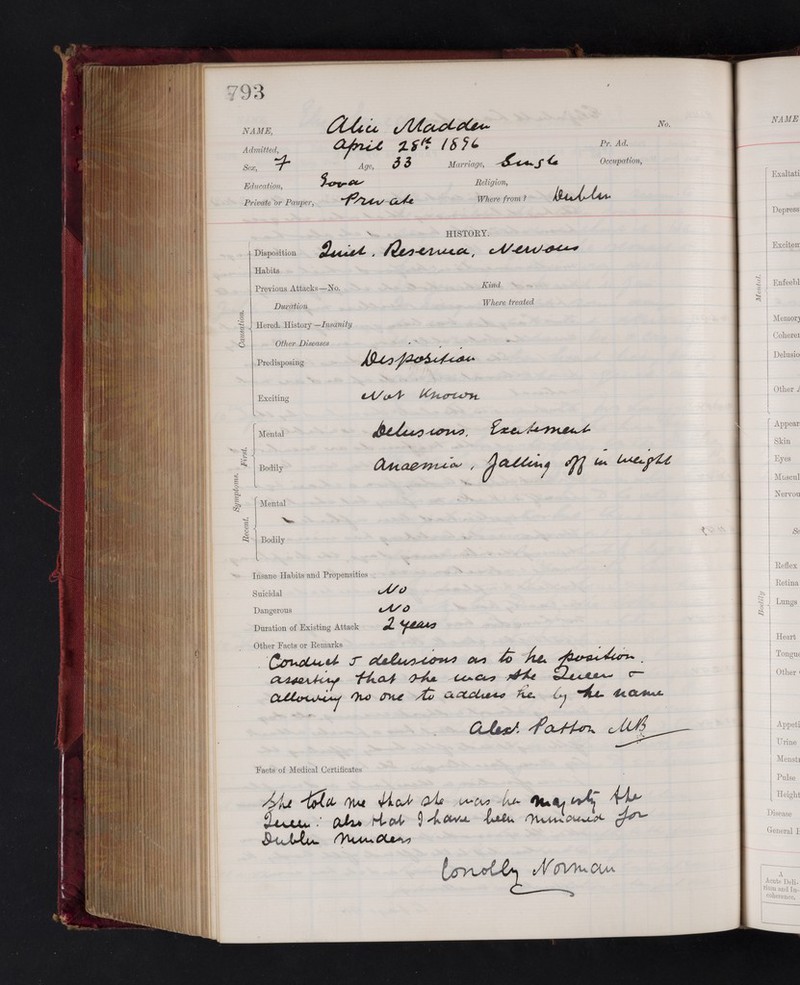 793
NAME, Alice Madden No.
Admitted, April 28th 1896 Pr. Ad.
Sex, F Age, 33 Marriage, Single Occupation,
Education, Good Religion,
Private or Pauper, Private Where from? Dublin
HISTORY.
Disposition Quiet. Reserved, Nervous
Habits
Previous Attacks—No. Kind
Duration Where treated
Hered. History—Insanity
Other Diseases
Causation.
Predisposing Disposition
Exciting Not Known
Symptoms.
First.
Mental Delusions. Excitement
Bodily Anaemia, falling off in weight
Recent.
Mental
Bodily
Insane Habits and Propensities
Suicidal No
Dangerous No
Duration of Existing Attack 2 years
Other Facts or Remarks
Conduct & delusions as to her position.
asserting that she was the Queen &
allowing no one to address her by her name
Alexr. Patton MB
Facts of Medical Certificates
She told me that she was her majesty the
Queen: also that I have been for
Dublin Murders
Conolly Norman
NAME
Mental.
Exaltati
Depress
Excitem
Enfeebl
Memory
Coheren
Delusio
Other
Bodily
Appear
Skin
Eyes
Muscul
Nervou
Reflex
Retina
Lungs
Heart
Tongue
Other
Appeti
Urine
Menstr
Pulse
Height
Disease
General
A
Acute Deli-
rium and In-
coherence.